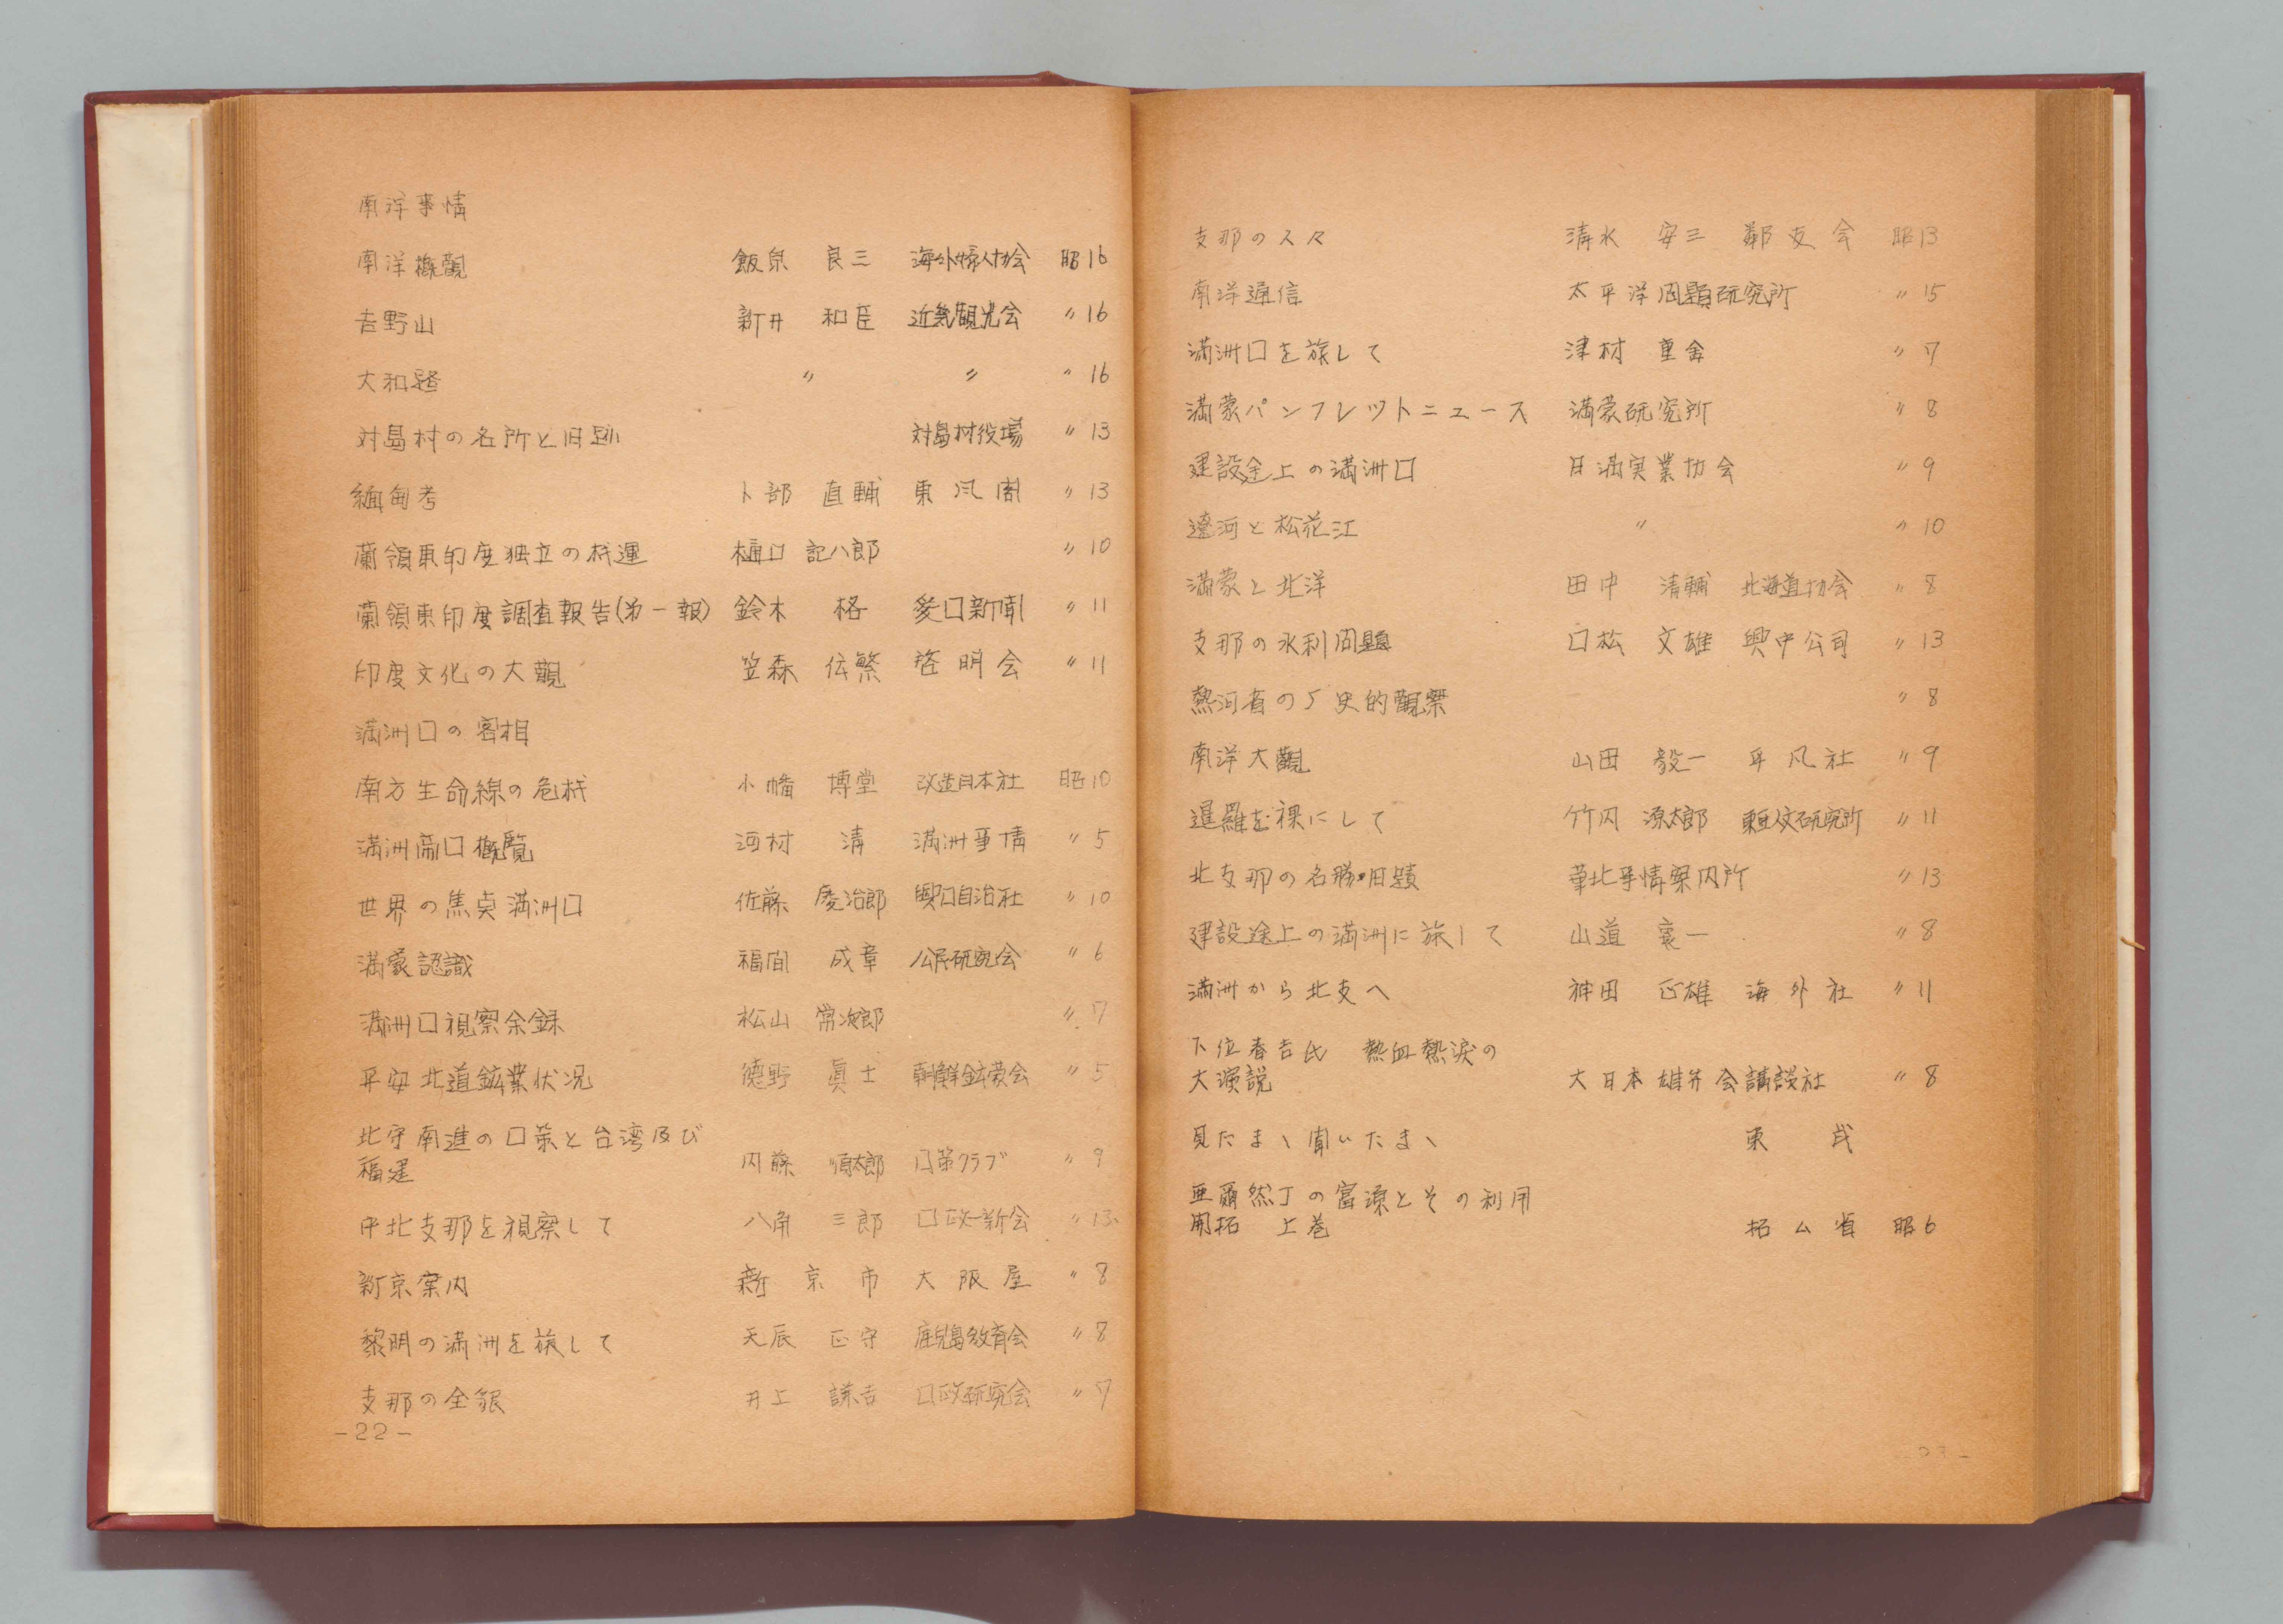 南洋事情
南洋概觀 飯泉 良三 海外婦人協会 昭16
吉野山 新井 和臣 近畿觀光会 〃16
大和路 〃 〃 〃16
対島村の名所と旧跡 対島村役場 〃13
緬甸考 卜部 直輔 東汎閣 〃13
蘭領東印度独立の机運 樋口 記八郎 〃10
蘭領東印度調査報告(第一報) 鈴木 格 愛口新聞 〃11
印度文化の大觀 笠森 伝繁 啓明会 〃11
満洲口の客相
南方生命線の危机 小幡 博堂 改造日本社 昭10
満洲商口概覧 河村 清 満洲事情 〃5
世界の焦点満洲口 佐藤 慶治郎 興口自治社 〃10
満蒙認識 福间 成章 公民研究会 〃6
満洲口視察余録 松山 常次郎 〃7
平安北道鉱業状況 徳野 眞士 朝鮮鉱業会 〃5
北守南進の口策と台湾及び
福建 内藤 順太郎 口策クラブ 〃9
中北支那を視察して 八角 三郎 口政一新会 〃13
新京案内 新京市 大阪屋 〃8
黎明の満洲を旅して 天辰 正守 鹿児島教育会 〃8
支那の全貌 井上 謙吉 口政研究会 〃7
-22-
支那の人々 清水 安三 鄰友会 昭13
南洋通信 太平洋问題研究所 〃15
満洲口を旅して 津村 重舎 〃7
満蒙パンフレットニュース 満蒙研究所 〃8
建設途上の満洲口 日満実業協会 〃9
遼河と松花江 〃 〃10
満蒙と北洋 田中 清輔 北海道協会 〃8
支那の水利问題 口松 文雄 興中公司 〃13
熱河省の历史的觀察 〃8
南洋大觀 山田 毅一 平凡社 〃9
暹羅を裸にして 竹内 源太郎 東亜人文研究所 〃11
北支那の名勝・旧蹟 華北事情案内所 〃13
建設途上の満洲に旅して 山道 襄一 〃8
満洲から北支へ 神田 正雄 海外社 〃11
下位春吉氏 熱血熱涙の
大演説 大日本雄弁会講談社 〃8
見たまゝ聞いたまゝ 東 武
亜爾然丁の富源とその利用
開拓 上巻 拓ム省 昭6